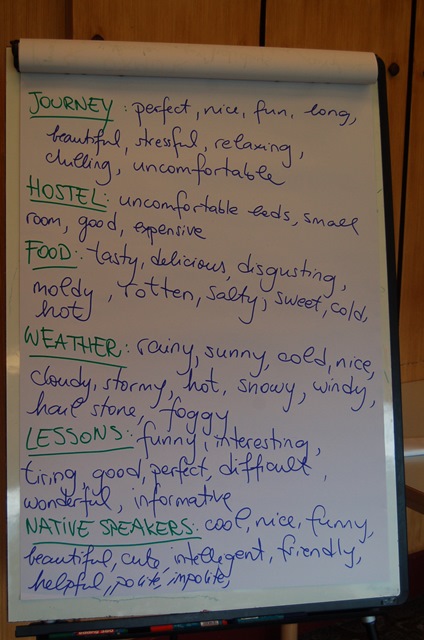 JOURNEY: perfect, nice, fun, long,
beautiful, stressful, relaxing,
chilling, uncomfortable
HOSTEL: uncomfortable beds, small
room, good, expensive
FOOD: tasty, delicious, disgusting,
moldy, rotten, salty, sweet, cold,
hot
WEATHER: rainy, sunny, cold, nice,
cloudy, stormy, hot, snowy, windy,
hail stone, foggy
LESSONS: funny, interesting,
tiring, good, perfect, difficult,
wonderful, informative
NATIVE SPEAKERS: cool, nice, funny,
beautiful, cute, intellegent, friendly,
helpful, polite, impolite,